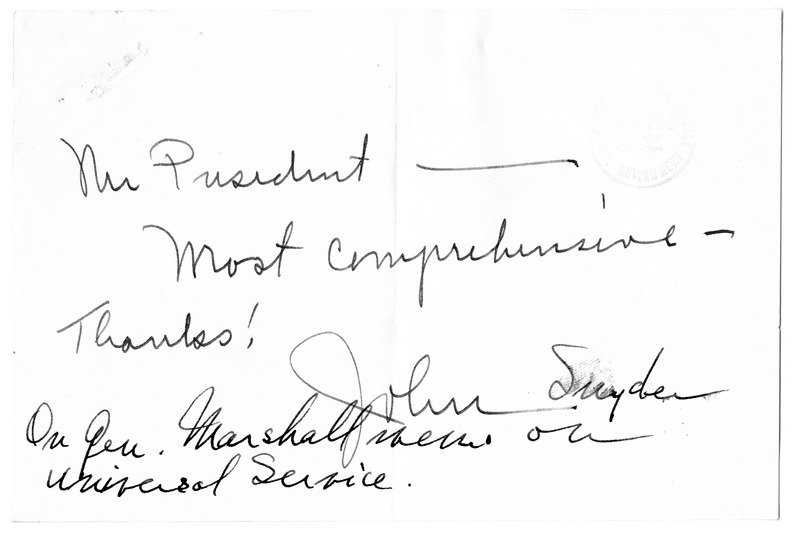 Mr President —
Most Comprehensive –
Thanks!
John Snyder
On Gen. Marshall memo. on
universal Service.